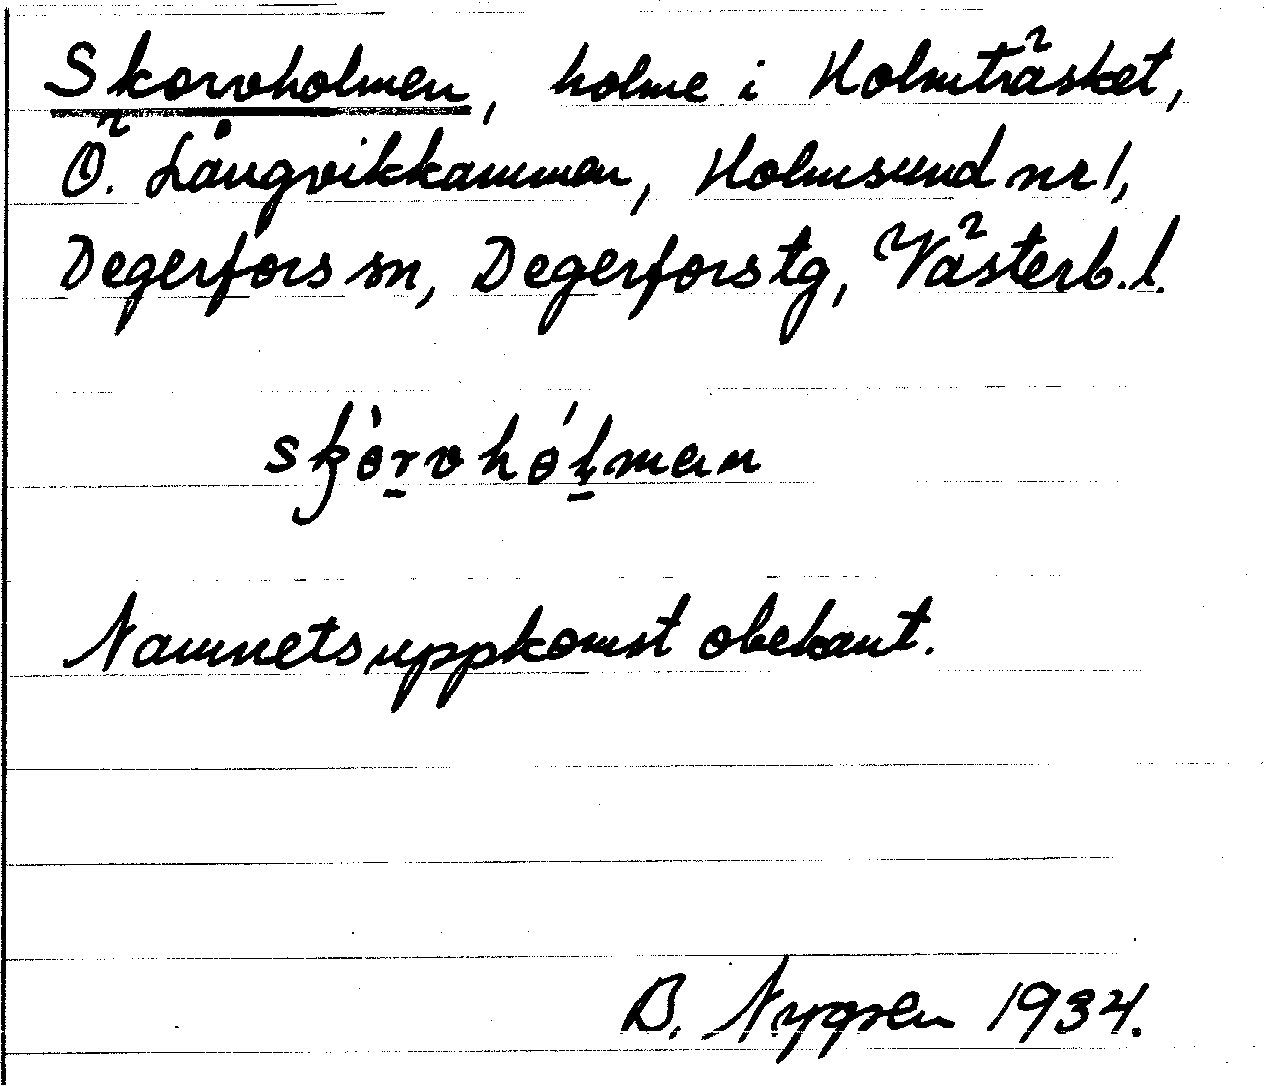 Skorvholmen, holme i Holmträsket,
Ö. Långvikkammen, Holmsund nr 1,
Degerfors sn, Degerfors tg, Västerb. l.
skòrvhólman
Namnets uppkomst obekant.
B. Nygren 1934.